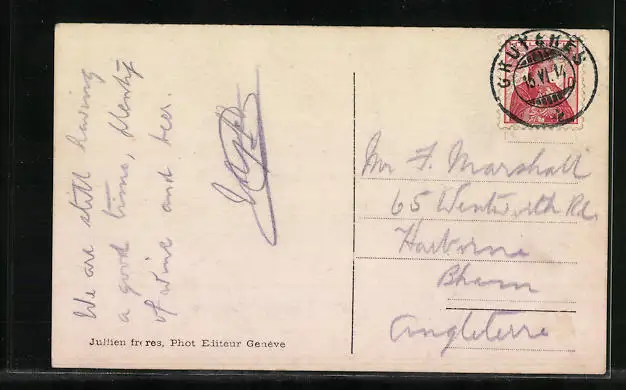 We are still having
a good time, plenty
of wine and beer.
Jullien freres, Phot Editeur Genève
GRUYERES
15 VI. 14
Mr F. Marshall
65 Wentworth Rd.
Harborne
Bham
Angleterre